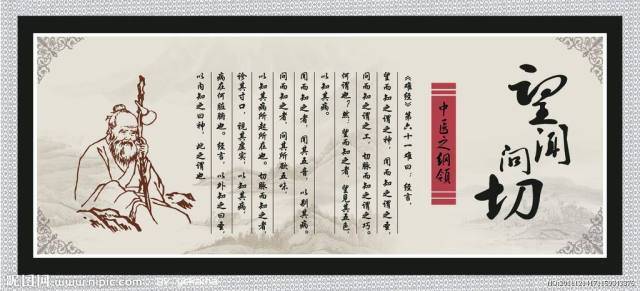 望闻问切
中医之纲领
《难经》第六十一难曰：经言，
望而知之谓之神，闻而知之谓之圣，
问而知之谓之工，切脉而知之谓之巧。
何谓也？然：望而知之者，望见其五色，
以知其病。
闻而知之者，闻其五音，以别其病。
问而知之者，问其所欲五味，
以知其病所起所在也。切脉而知之者
诊其寸口，视其虚实，以知其病，
病在何脏腑也。经言，以外知之曰圣，
以内知之曰神，此之谓也。
昵图网 www.nipic.com